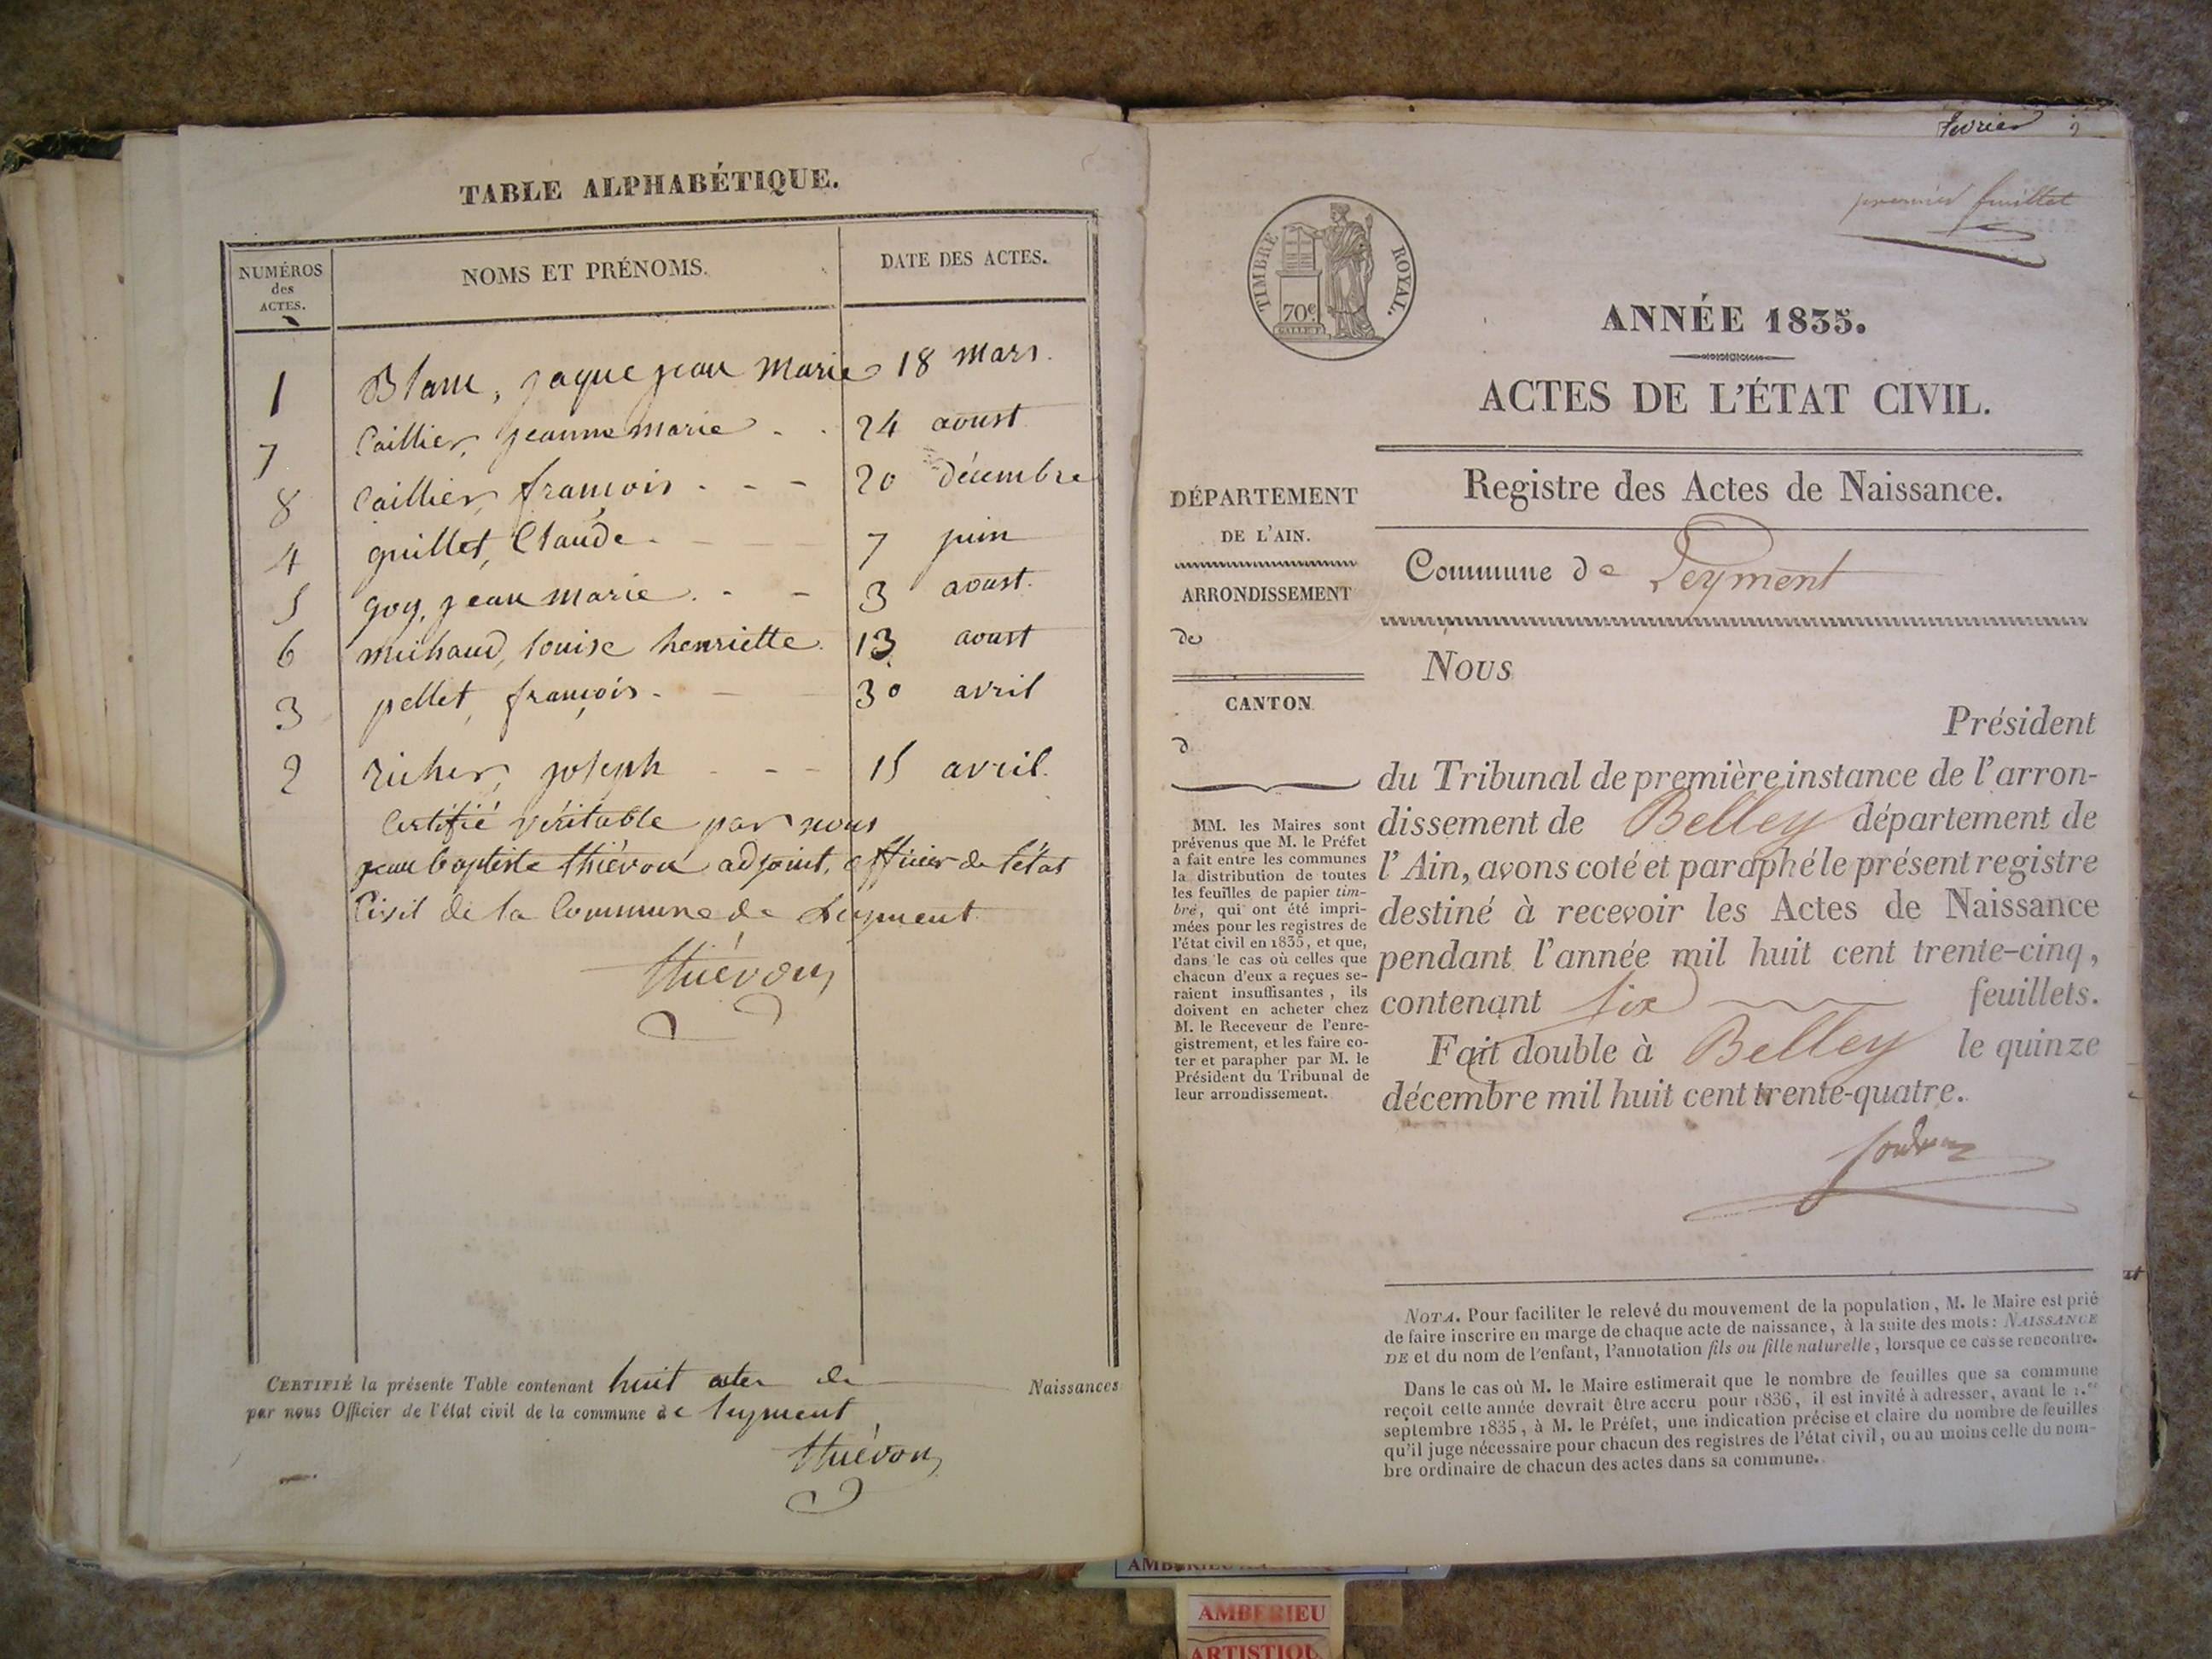 TABLE ALPHABÉTIQUE.
NUMÉROS des ACTES.
NOMS ET PRÉNOMS.
DATE DES ACTES.
1 Blanc, jaque jean marie 18 mars.
7 Caillier, jeanne marie - - 24 aoust
8 Caillier, françois - - - 20 décembre
4 guillet, Claude - - - 7 juin
5 goy, jean marie. - - 3 aoust.
6 michaud, louise henriette. 13 aoust
3 pellet, françois - - 30 avril
2 richer, joseph - - - 15 avril.
Certifié véritable par nous
jean baptiste thiévon adjoint, officier de l'état
Civil de la Commune de Leyment
thiévon
CERTIFIÉ la présente Table contenant huit actes de Naissances
par nous Officier de l'état civil de la commune de leyment
thiévon
fevrier
premier feuillet
TIMBRE ROYAL.
70c
ANNÉE 1835.
ACTES DE L'ÉTAT CIVIL.
Registre des Actes de Naissance.
Commune de Leyment
DÉPARTEMENT
DE L'AIN.
ARRONDISSEMENT
de
CANTON
d
MM. les Maires sont
prévenus que M. le Préfet
a fait entre les communes
la distribution de toutes
les feuilles de papier tim-
bré, qui ont été impri-
mées pour les registres de
l'état civil en 1835, et que,
dans le cas où celles que
chacun d'eux a reçues se-
raient insuffisantes, ils
doivent en acheter chez
M. le Receveur de l'enre-
gistrement, et les faire co-
ter et parapher par M. le
Président du Tribunal de
leur arrondissement.
Nous
Président
du Tribunal de première instance de l'arron-
dissement de Belley département de
l'Ain, avons coté et paraphé le présent registre
destiné à recevoir les Actes de Naissance
pendant l'année mil huit cent trente-cinq,
contenant six feuillets.
Fait double à Belley le quinze
décembre mil huit cent trente-quatre.
NOTA. Pour faciliter le relevé du mouvement de la population, M. le Maire est prié
de faire inscrire en marge de chaque acte de naissance, à la suite des mots: NAISSANCE
DE et du nom de l'enfant, l'annotation fils ou fille naturelle, lorsque ce cas se rencontre.
Dans le cas où M. le Maire estimerait que le nombre de feuilles que sa commune
reçoit cette année devrait être accru pour 1836, il est invité à adresser, avant le 1.er
septembre 1835, à M. le Préfet, une indication précise et claire du nombre de feuilles
qu'il juge nécessaire pour chacun des registres de l'état civil, ou au moins celle du nom-
bre ordinaire de chacun des actes dans sa commune.
AMBERIEU
ARTISTIQU